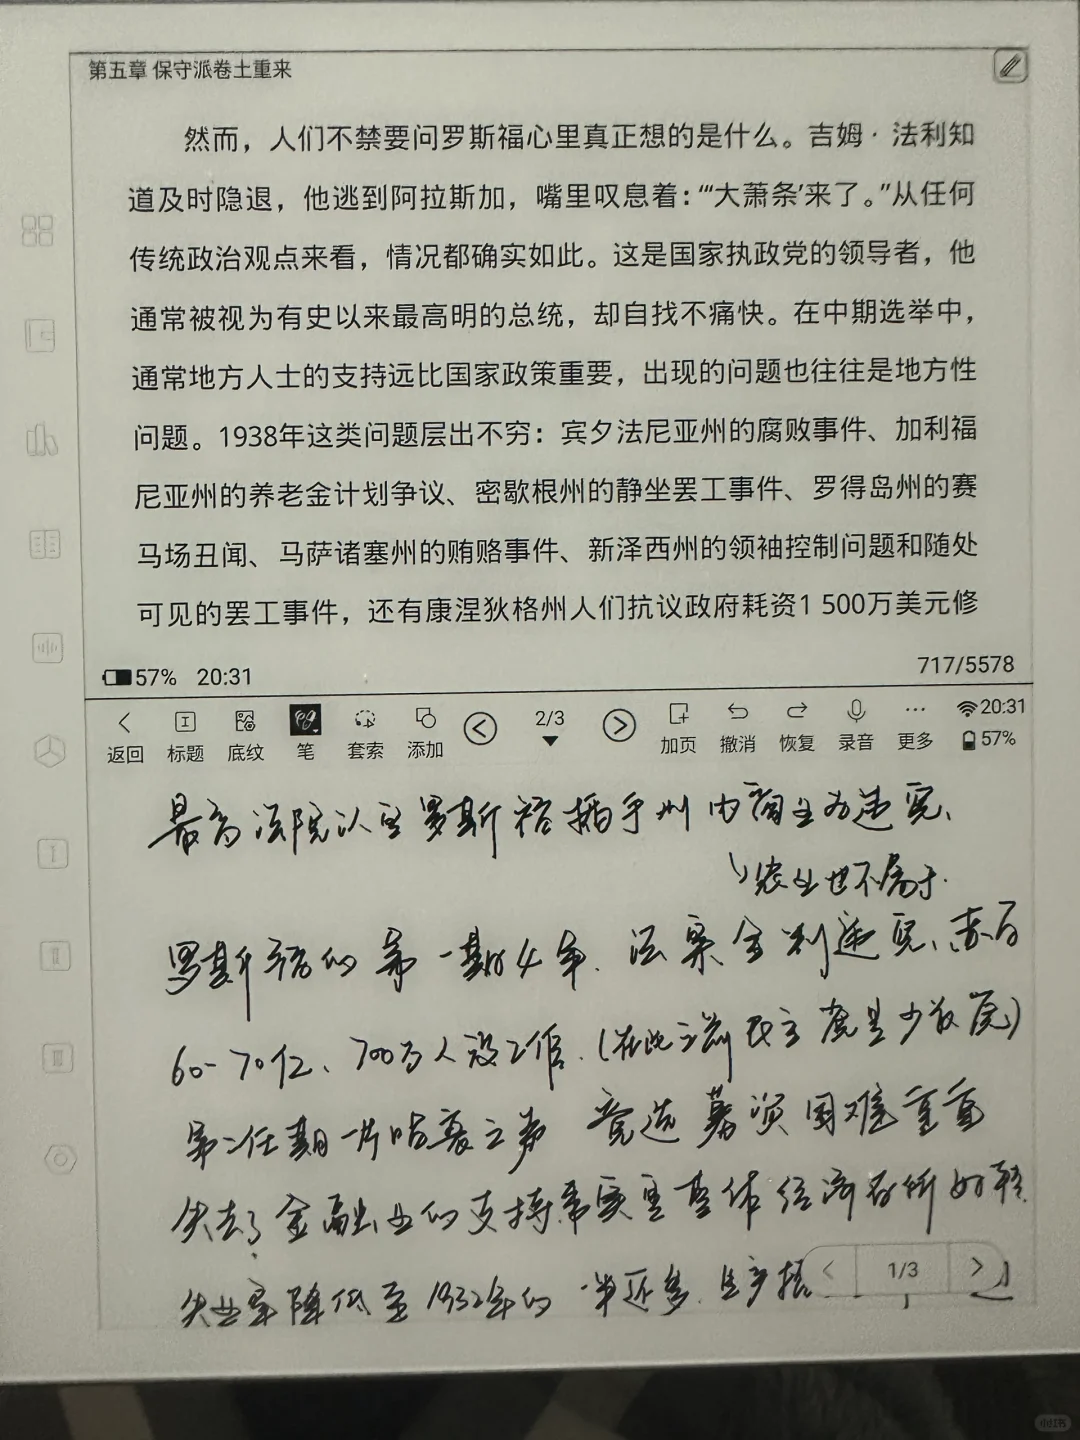 第五章 保守派卷土重来
然而，人们不禁要问罗斯福心里真正想的是什么。吉姆·法利知
道及时隐退，他逃到阿拉斯加，嘴里叹息着：“‘大萧条’来了。”从任何
传统政治观点来看，情况都确实如此。这是国家执政党的领导者，他
通常被视为有史以来最高明的总统，却自找不痛快。在中期选举中，
通常地方人士的支持远比国家政策重要，出现的问题也往往是地方性
问题。1938年这类问题层出不穷：宾夕法尼亚州的腐败事件、加利福
尼亚州的养老金计划争议、密歇根州的静坐罢工事件、罗得岛州的赛
马场丑闻、马萨诸塞州的贿赂事件、新泽西州的领袖控制问题和随处
可见的罢工事件，还有康涅狄格州人们抗议政府耗资1 500万美元修
57% 20:31
717/5578
返回 标题 底纹 笔 套索 添加 2/3 加页 撤消 恢复 录音 更多 20:31 57%
最高法院以罗斯福插手州内商业为违宪、
农业也不属于.
罗斯福的第一期4年. 法案全判违宪、赤字
60-70亿、700万人没工作.(在此之前民主党是少数党)
第二任期一片咕哀之声 竞选募资困难重重
失去了金融业的支持 事实是整体经济有所好转
失业率降低至1932年的一半还多. 生产
1/3